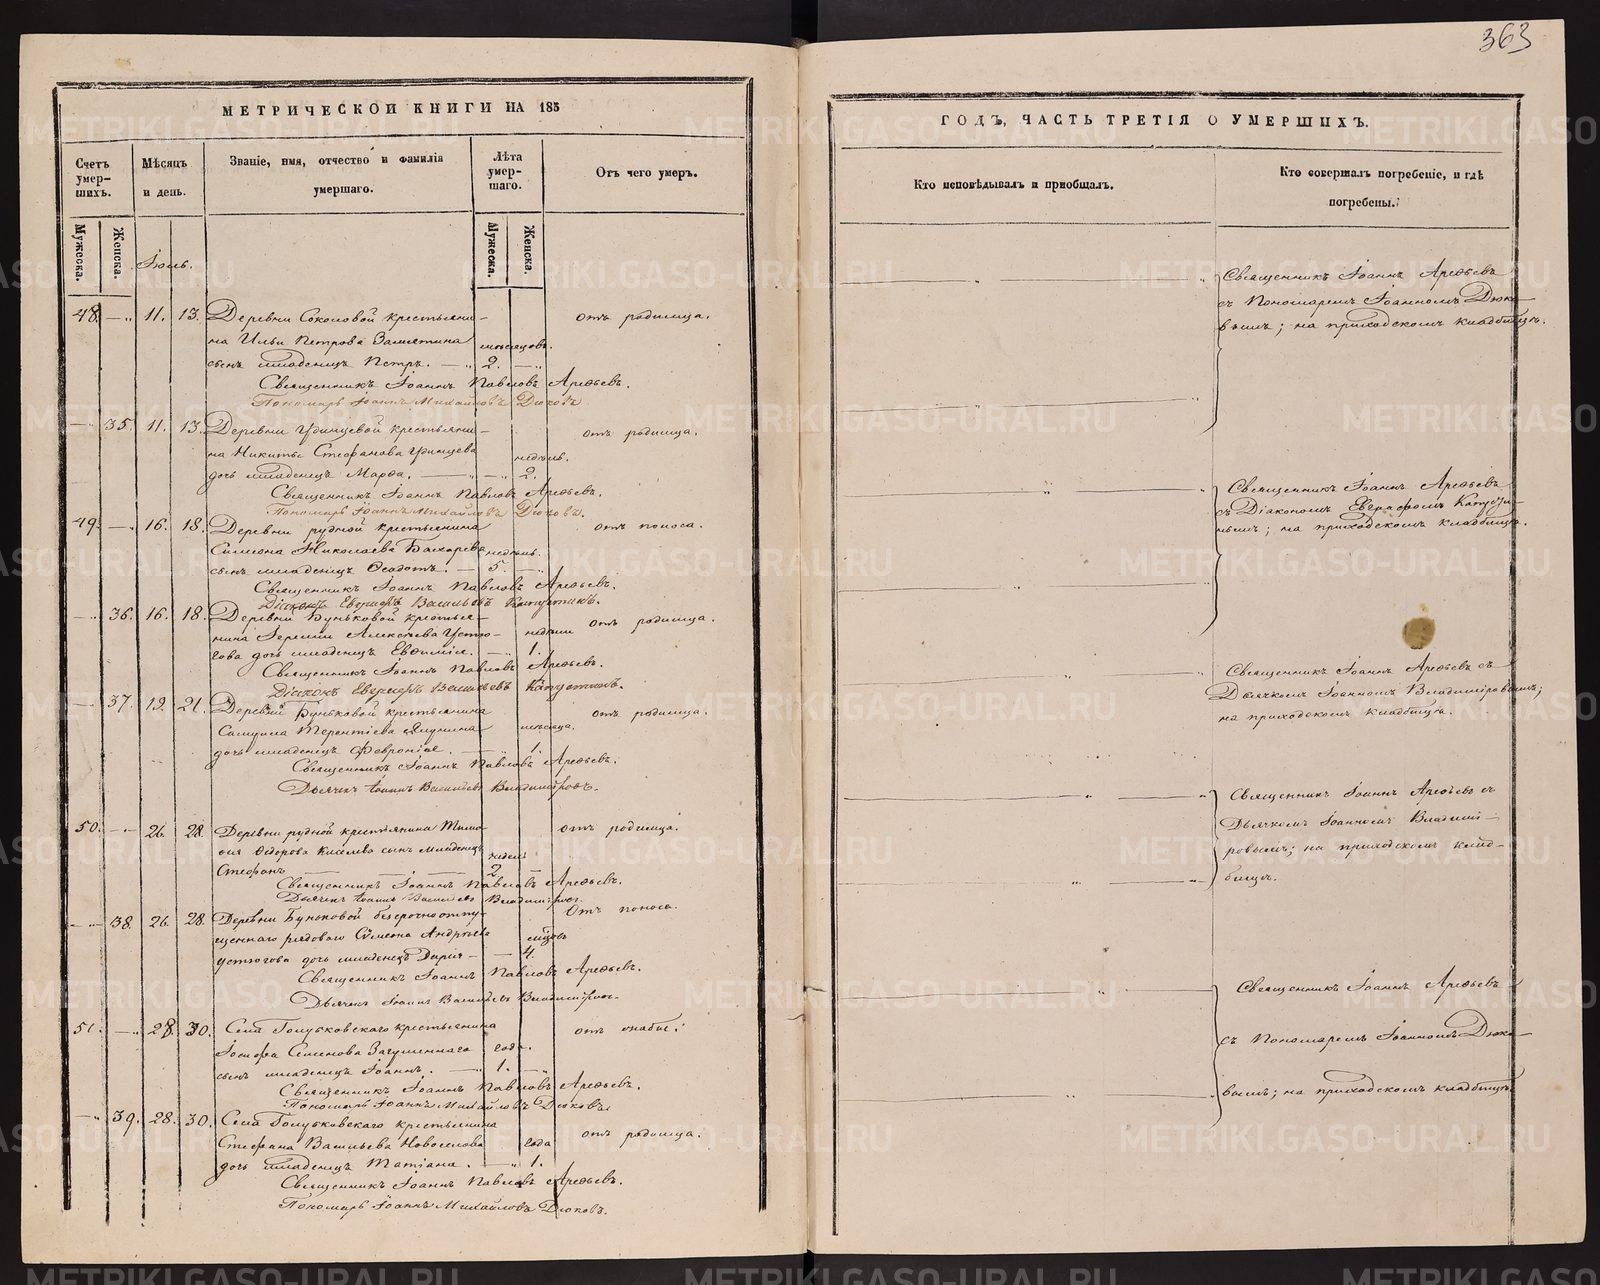 363
МЕТРИЧЕСКОЙ КНИГИ НА 185
Счетъ умер-шихъ.
Мѣсяцъ и день.
Званіе, имя, отчество и фамилія умершаго.
Лѣта умер-шаго.
Отъ чего умеръ.
Мужеска.
Женска.
Мужеска.
Женска.
Іюль.
48. — „ 11. 13. Деревни Соколовой крестьяни- отъ родимца.
на Ильи Петрова Замятина мѣсяцовъ.
сынъ младенецъ Петръ. — „ 2. — „
Священникъ Іоаннъ Павловъ Арефьевъ.
Пономарь Іоаннъ Михайловъ Дюковъ.
— „ 35. 11. 13. Деревни Удинцевой крестьяни- отъ родимца.
на Никиты Стефанова Удинцева недѣль.
дочь младенецъ Марфа. — „ — 2.
Священникъ Іоаннъ Павловъ Арефьевъ.
Пономарь Іоаннъ Михайловъ Дюковъ.
49. — „ 16. 18. Деревни рудной крестьянина отъ поноса.
Симеона Николаева Бахарева недѣль.
сынъ младенецъ Ѳеодотъ. — 5. — „
Священникъ Іоаннъ Павловъ Арефьевъ.
Діаконъ Евграфъ Васильевъ Капустинъ.
— „ 36. 16. 18. Деревни Буньковой крестья- отъ родимца.
нина Іереміи Алексѣева Устю- недѣли
гова дочь младенецъ Евфимія. — „ 1.
Священникъ Іоаннъ Павловъ Арефьевъ.
Діаконъ Евграфъ Васильевъ Капустинъ.
— „ 37. 19. 21. Деревни Буньковой крестьянина отъ родимца.
Самуила Терентіева мѣсяца.
дочь младенецъ Февронія. — „ 1.
Священникъ Іоаннъ Павловъ Арефьевъ.
Дьячекъ Іоаннъ Васильевъ Владиміровъ.
50. — „ 26. 28. Деревни рудной крестьянина Тимо- отъ родимца.
фея Ѳедорова Киселева сынъ младенецъ недѣль
Стефанъ — 2 —
Священникъ Іоаннъ Павловъ Арефьевъ.
Дьячекъ Іоаннъ Васильевъ Владиміровъ.
— „ 38. 26. 28. Деревни Буньковой безсрочноотпу- Отъ поноса.
щеннаго рядоваго Сѵмеона Андрѣева мѣсяцовъ
Устюгова дочь младенецъ Дарія — — 4.
Священникъ Іоаннъ Павловъ Арефьевъ.
Дьячекъ Іоаннъ Васильевъ Владиміровъ.
51. — „ 28. 30. Села Голубковскаго крестьянина отъ
Іосифа Семенова года.
сынъ младенецъ Іоаннъ. — „ 1. — „
Священникъ Іоаннъ Павловъ Арефьевъ.
Пономарь Іоаннъ Михайловъ Дюковъ.
— „ 39. 28. 30. Села Голубковскаго крестьянина отъ родимца.
Стефана Васильева Новоселова года
дочь младенецъ Татіана. — „ 1.
Священникъ Іоаннъ Павловъ Арефьевъ.
Пономарь Іоаннъ Михайловъ Дюковъ.
ГОДЪ, ЧАСТЬ ТРЕТІЯ О УМЕРШИХЪ.
Кто исповѣдывалъ и пріобщалъ.
Кто совершалъ погребеніе, и гдѣ погребены.
Священникъ Іоаннъ Арефьевъ
съ Пономаремъ Іоанномъ Дюко-
вымъ; на приходскомъ кладбищѣ.
Священникъ Іоаннъ Арефьевъ
съ Діакономъ Евграфомъ Капусти-
нымъ; на приходскомъ кладбищѣ.
Священникъ Іоаннъ Арефьевъ съ
Дьячкомъ Іоанномъ Владиміровымъ;
на приходскомъ кладбищѣ.
Священникъ Іоаннъ Арефьевъ съ
Дьячкомъ Іоанномъ Владимі-
ровымъ; на приходскомъ клад-
бищѣ.
Священникъ Іоаннъ Арефьевъ
съ Пономаремъ Іоанномъ Дюко-
вымъ; на приходскомъ кладбищѣ.
METRIKI.GASO-URAL.RU